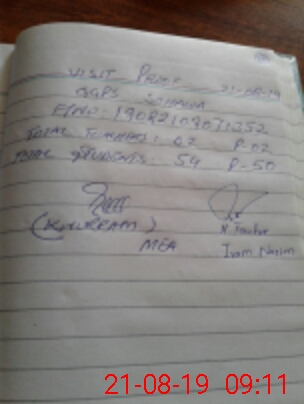 VISIT PROOF 21-08-19
GGPS
F/NO: 19082109071352
TOTAL TEACHERS: 02 P-02
TOTAL STUDENTS: 54 P-50
(KHURRAM)
MEA
Iram Nasim
21-08-19 09:11